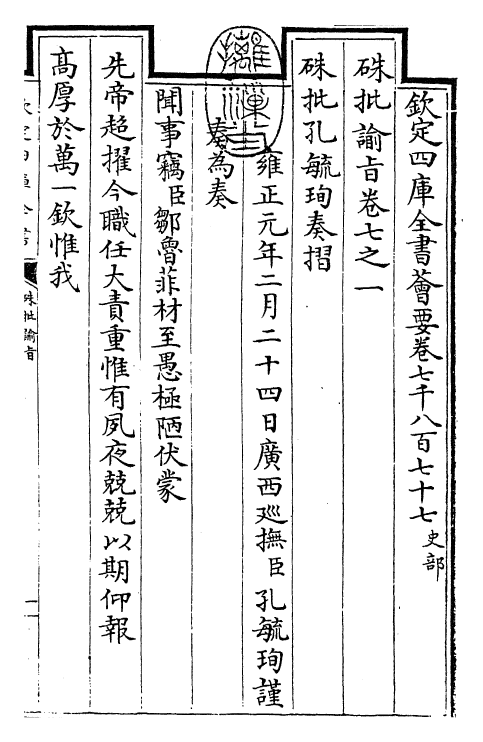 欽定四庫全書薈要卷七千八百七十七史部
硃批諭旨卷七之一
硃批孔毓珣奏摺
雍正元年二月二十四日廣西廵撫臣孔毓珣謹
奏為奏
聞事竊臣鄒魯菲材至愚極陋伏蒙
先帝超擢今職任大責重惟有夙夜兢兢以期仰報
髙厚於萬一欽惟我
硃批諭旨
一